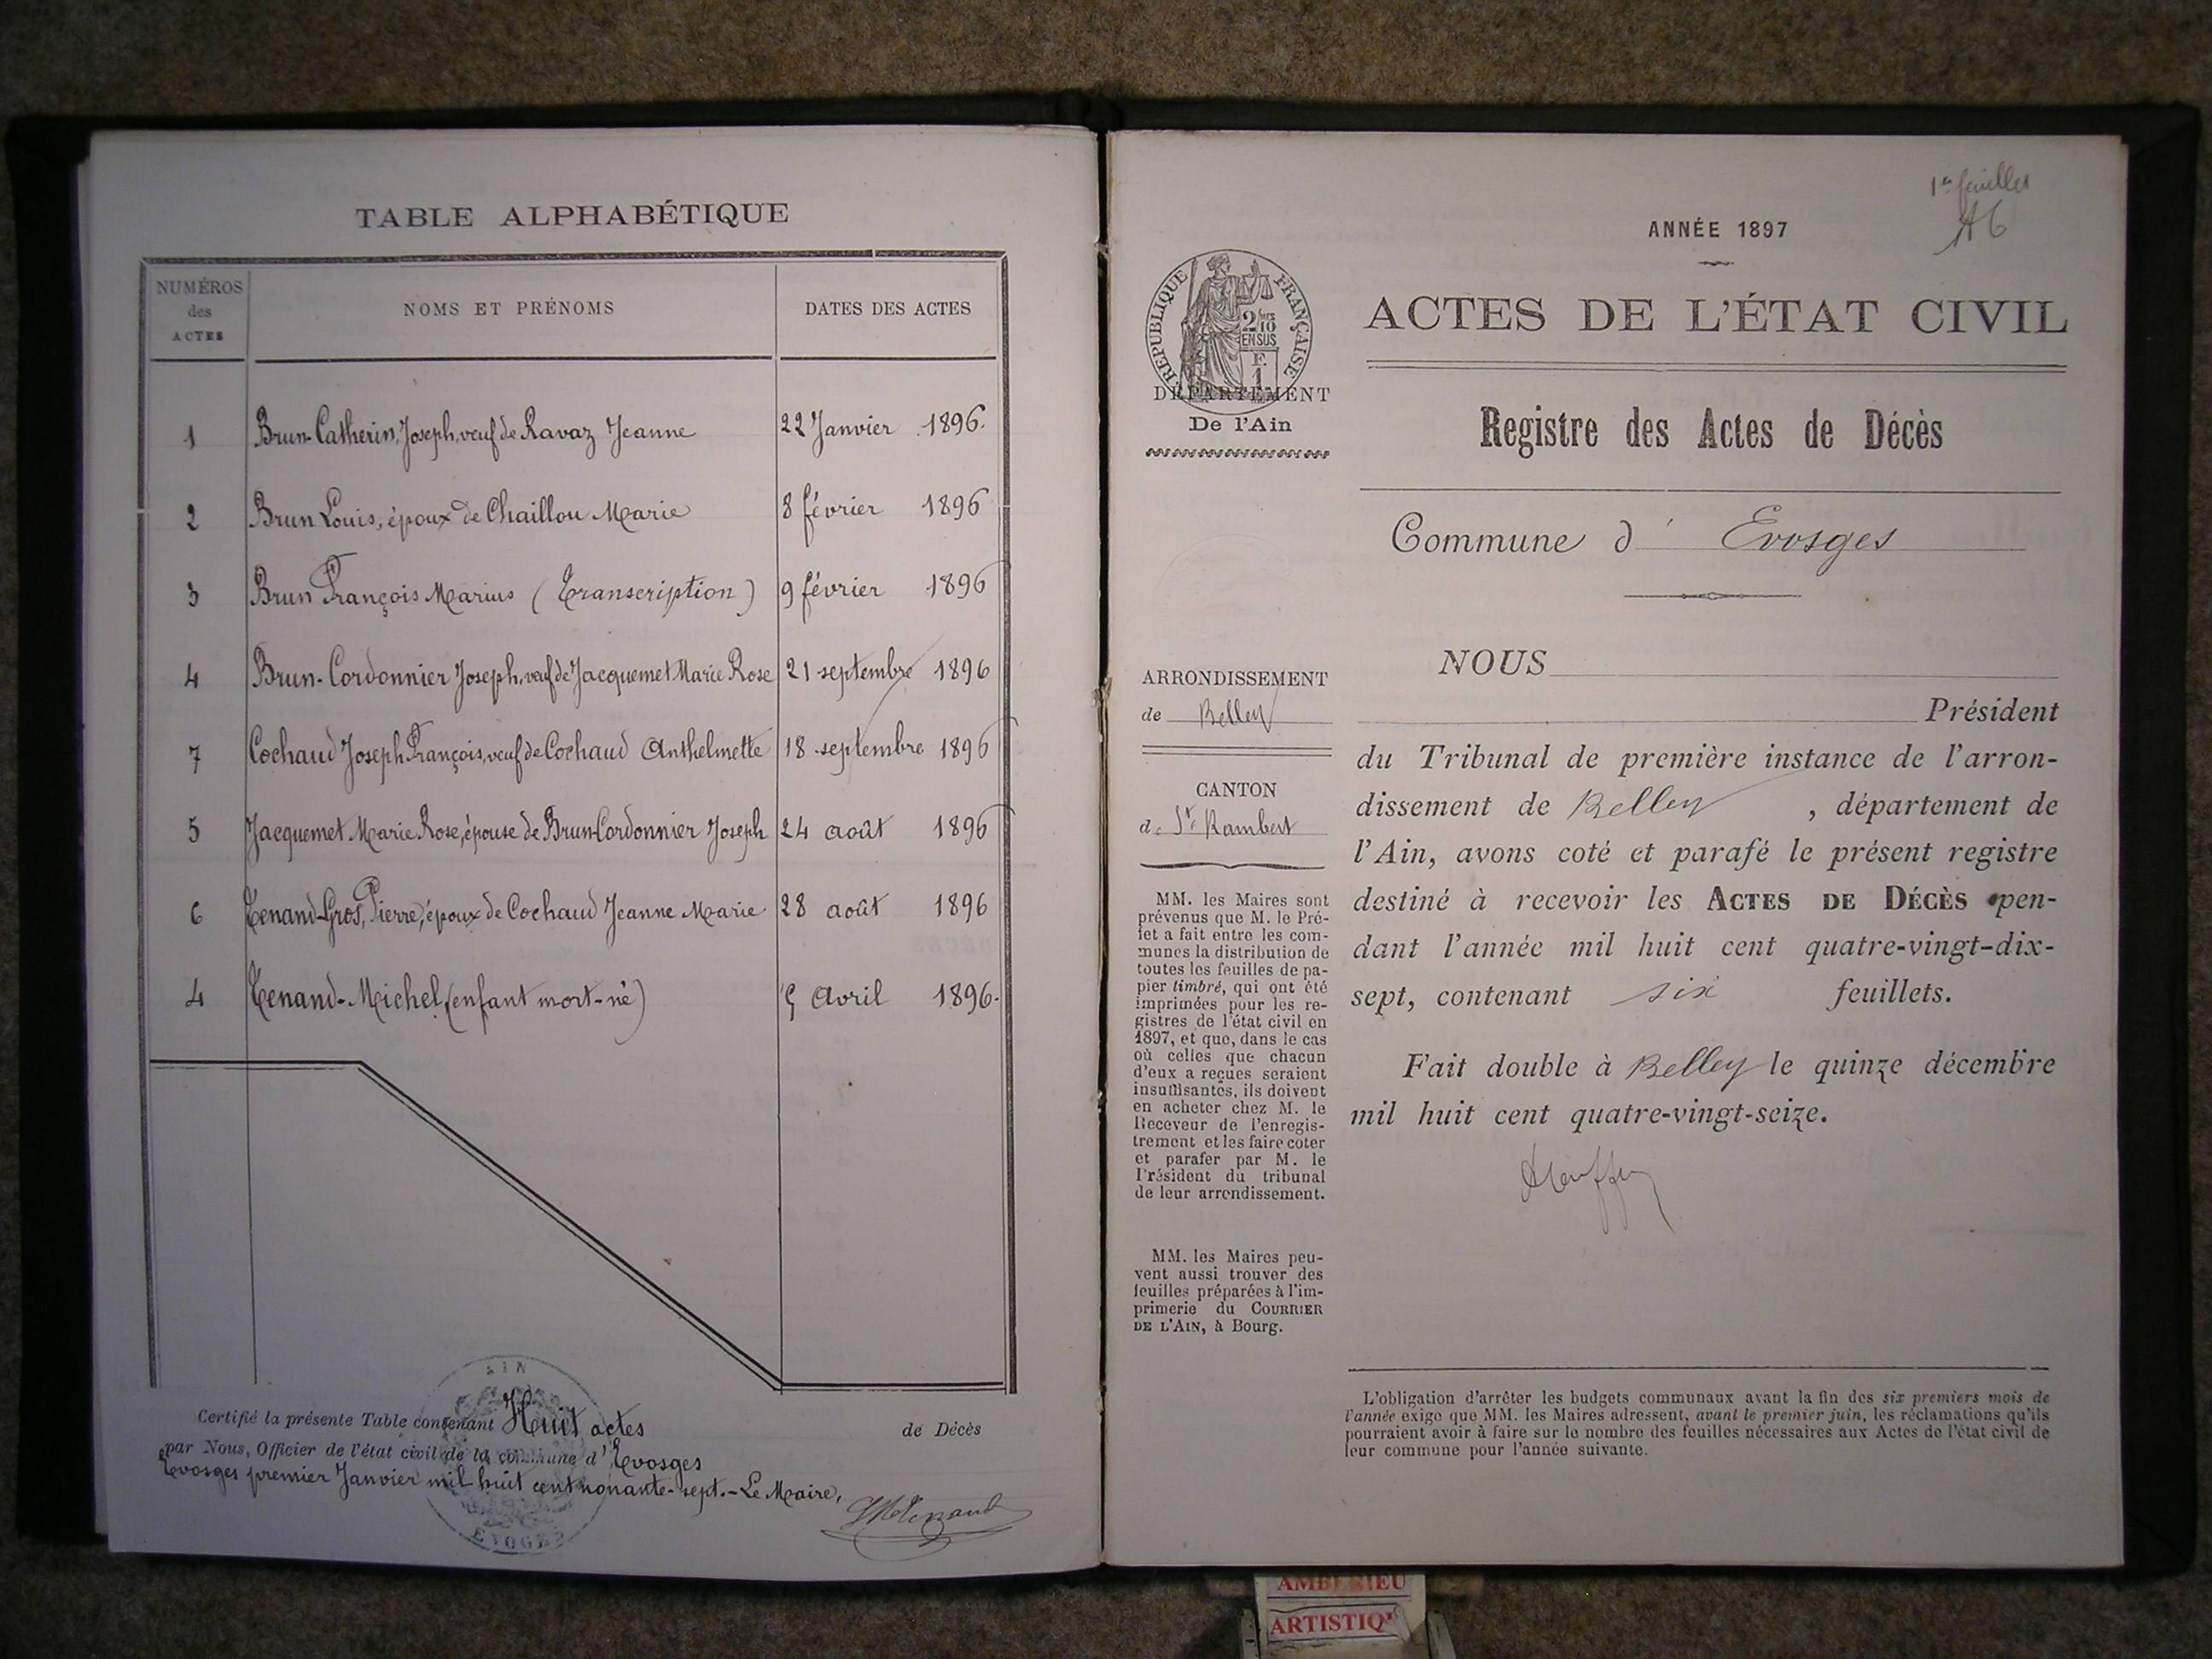 TABLE ALPHABÉTIQUE
NUMÉROS des ACTES
NOMS ET PRÉNOMS
DATES DES ACTES
1 Brun-Catherin, Joseph, veuf de Ravaz Jeanne 22 Janvier 1896.
2 Brun Louis, époux de Chaillou Marie 8 février 1896
3 Brun François Marius (Transcription) 9 février 1896
4 Brun-Cordonnier Joseph, veuf de Jacquemet Marie Rose 21 septembre 1896
7 Cochaud Joseph François, veuf de Cochaud Anthelmette 18 septembre 1896
5 Jacquemet Marie Rose, épouse de Brun-Cordonnier Joseph 24 août 1896
6 Tenand-Gros, Pierre, époux de Cochaud Jeanne Marie 28 août 1896
4 Tenand-Michel (enfant mort-né) Avril 1896.
Certifié la présente Table contenant Huit actes de Décès
par Nous, Officier de l'état civil de la commune d'Evosges
Evosges premier Janvier mil huit cent nonante-sept.- Le Maire,
AIN
EVOGES
1er feuillet
ANNÉE 1897
RÉPUBLIQUE FRANÇAISE
2/10
EN SUS
F
1
ACTES DE L'ÉTAT CIVIL
DÉPARTEMENT
De l'Ain
Registre des Actes de Décès
Commune d' Evosges
ARRONDISSEMENT
de Belley
CANTON
de St Rambert
MM. les Maires sont
prévenus que M. le Pré-
fet a fait entre les com-
munes la distribution de
toutes les feuilles de pa-
pier timbré, qui ont été
imprimées pour les re-
gistres de l'état civil en
1897, et que, dans le cas
où celles que chacun
d'eux a reçues seraient
insuffisantes, ils doivent
en acheter chez M. le
Receveur de l'enregis-
trement et les faire coter
et parafer par M. le
Président du tribunal
de leur arrondissement.
MM. les Maires peu-
vent aussi trouver des
feuilles préparées à l'im-
primerie du COURRIER
DE L'AIN, à Bourg.
NOUS
Président
du Tribunal de première instance de l'arron-
dissement de Belley , département de
l'Ain, avons coté et parafé le présent registre
destiné à recevoir les ACTES DE DÉCÈS pen-
dant l'année mil huit cent quatre-vingt-dix-
sept, contenant six feuillets.
Fait double à Belley le quinze décembre
mil huit cent quatre-vingt-seize.
L'obligation d'arrêter les budgets communaux avant la fin des six premiers mois de
l'année exige que MM. les Maires adressent, avant le premier juin, les réclamations qu'ils
pourraient avoir à faire sur le nombre des feuilles nécessaires aux Actes de l'état civil de
leur commune pour l'année suivante.
ARTISTIQ